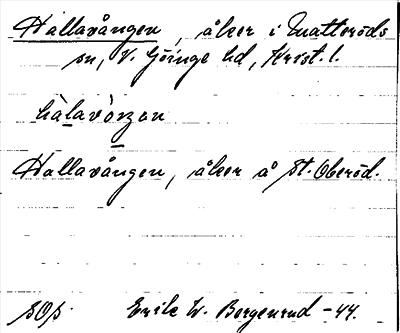 Hallavången, åker i Matteröds
sn, V. Göinge hd, Krist. l.
hàlavòŋən
Hallavången, åker å St. Oberöd.
sOp. Erik W. Bergenrud -44.